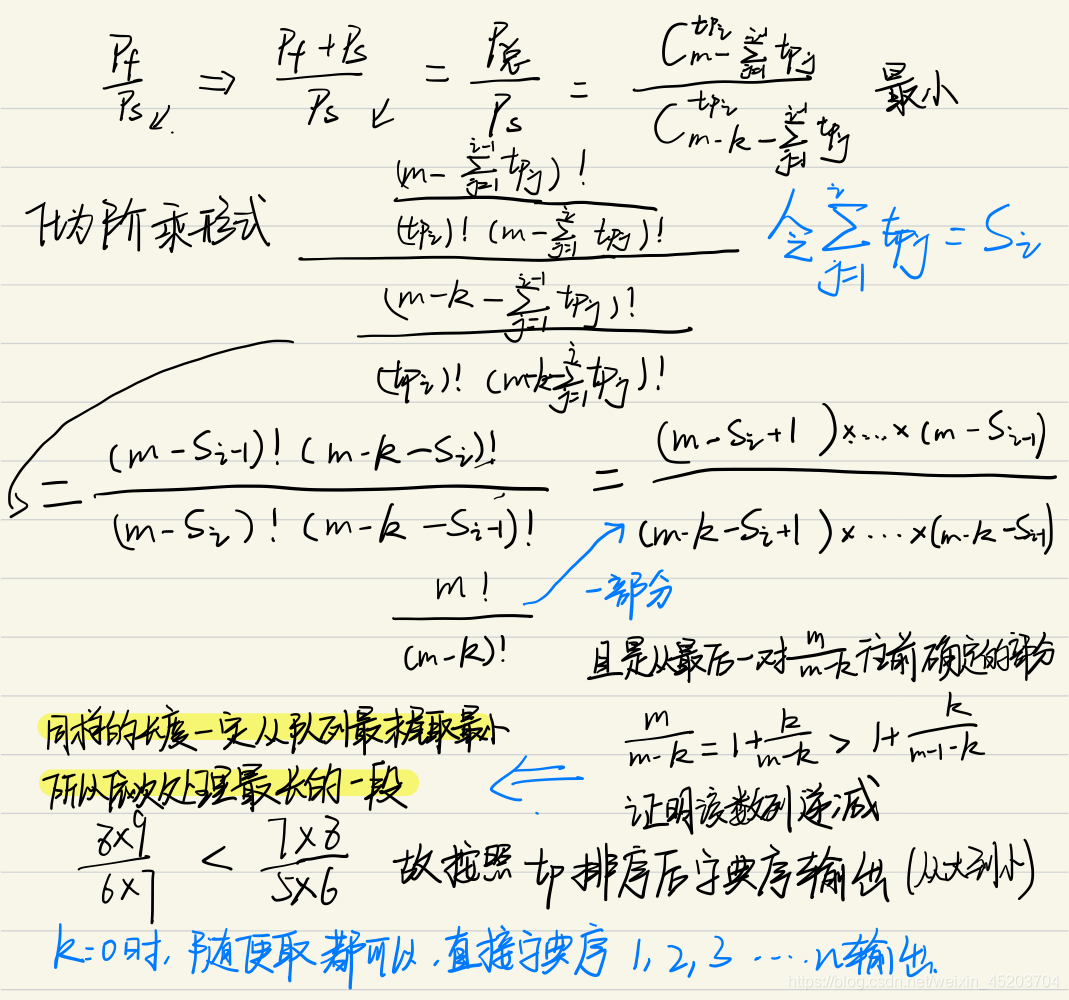 P_f/P_s↙ ⇒ (P_f+P_s)/P_s ↙ = P_总/P_s = C_{m-∑_{j=1}^{i-1}tp_j}^{tp_i} / C_{m-k-∑_{j=1}^{i-1}tp_j}^{tp_i} 最小
化为阶乘形式 [(m-∑_{j=1}^{i-1}tp_j)! / ((tp_i)! (m-∑_{j=1}^{i}tp_j)!)] / [(m-k-∑_{j=1}^{i-1}tp_j)! / ((tp_i)! (m-k-∑_{j=1}^{i}tp_j)!)] 令∑_{j=1}^{i}tp_j = S_i
= (m-S_{i-1})! (m-k-S_i)! / ((m-S_i)! (m-k-S_{i-1})!) = (m-S_i+1)×...×(m-S_{i-1}) / ((m-k-S_i+1)×...×(m-k-S_{i-1}))
m!/(m-k)! 一部分
且是从最后一对 m/(m-k) 往前确定的部分
同样的长度一定从队列最末尾取最小
所以依次处理最长的一段
m/(m-k) = 1+k/(m-k) > 1+k/(m-1-k)
证明该数列递减
(8×9)/(6×7) < (7×8)/(5×6) 故按照 tp 排序后字典序输出(从大到小)
k=0时,随便取都可以,直接字典序 1,2,3 ....n输出.
https://blog.csdn.net/weixin_45203704